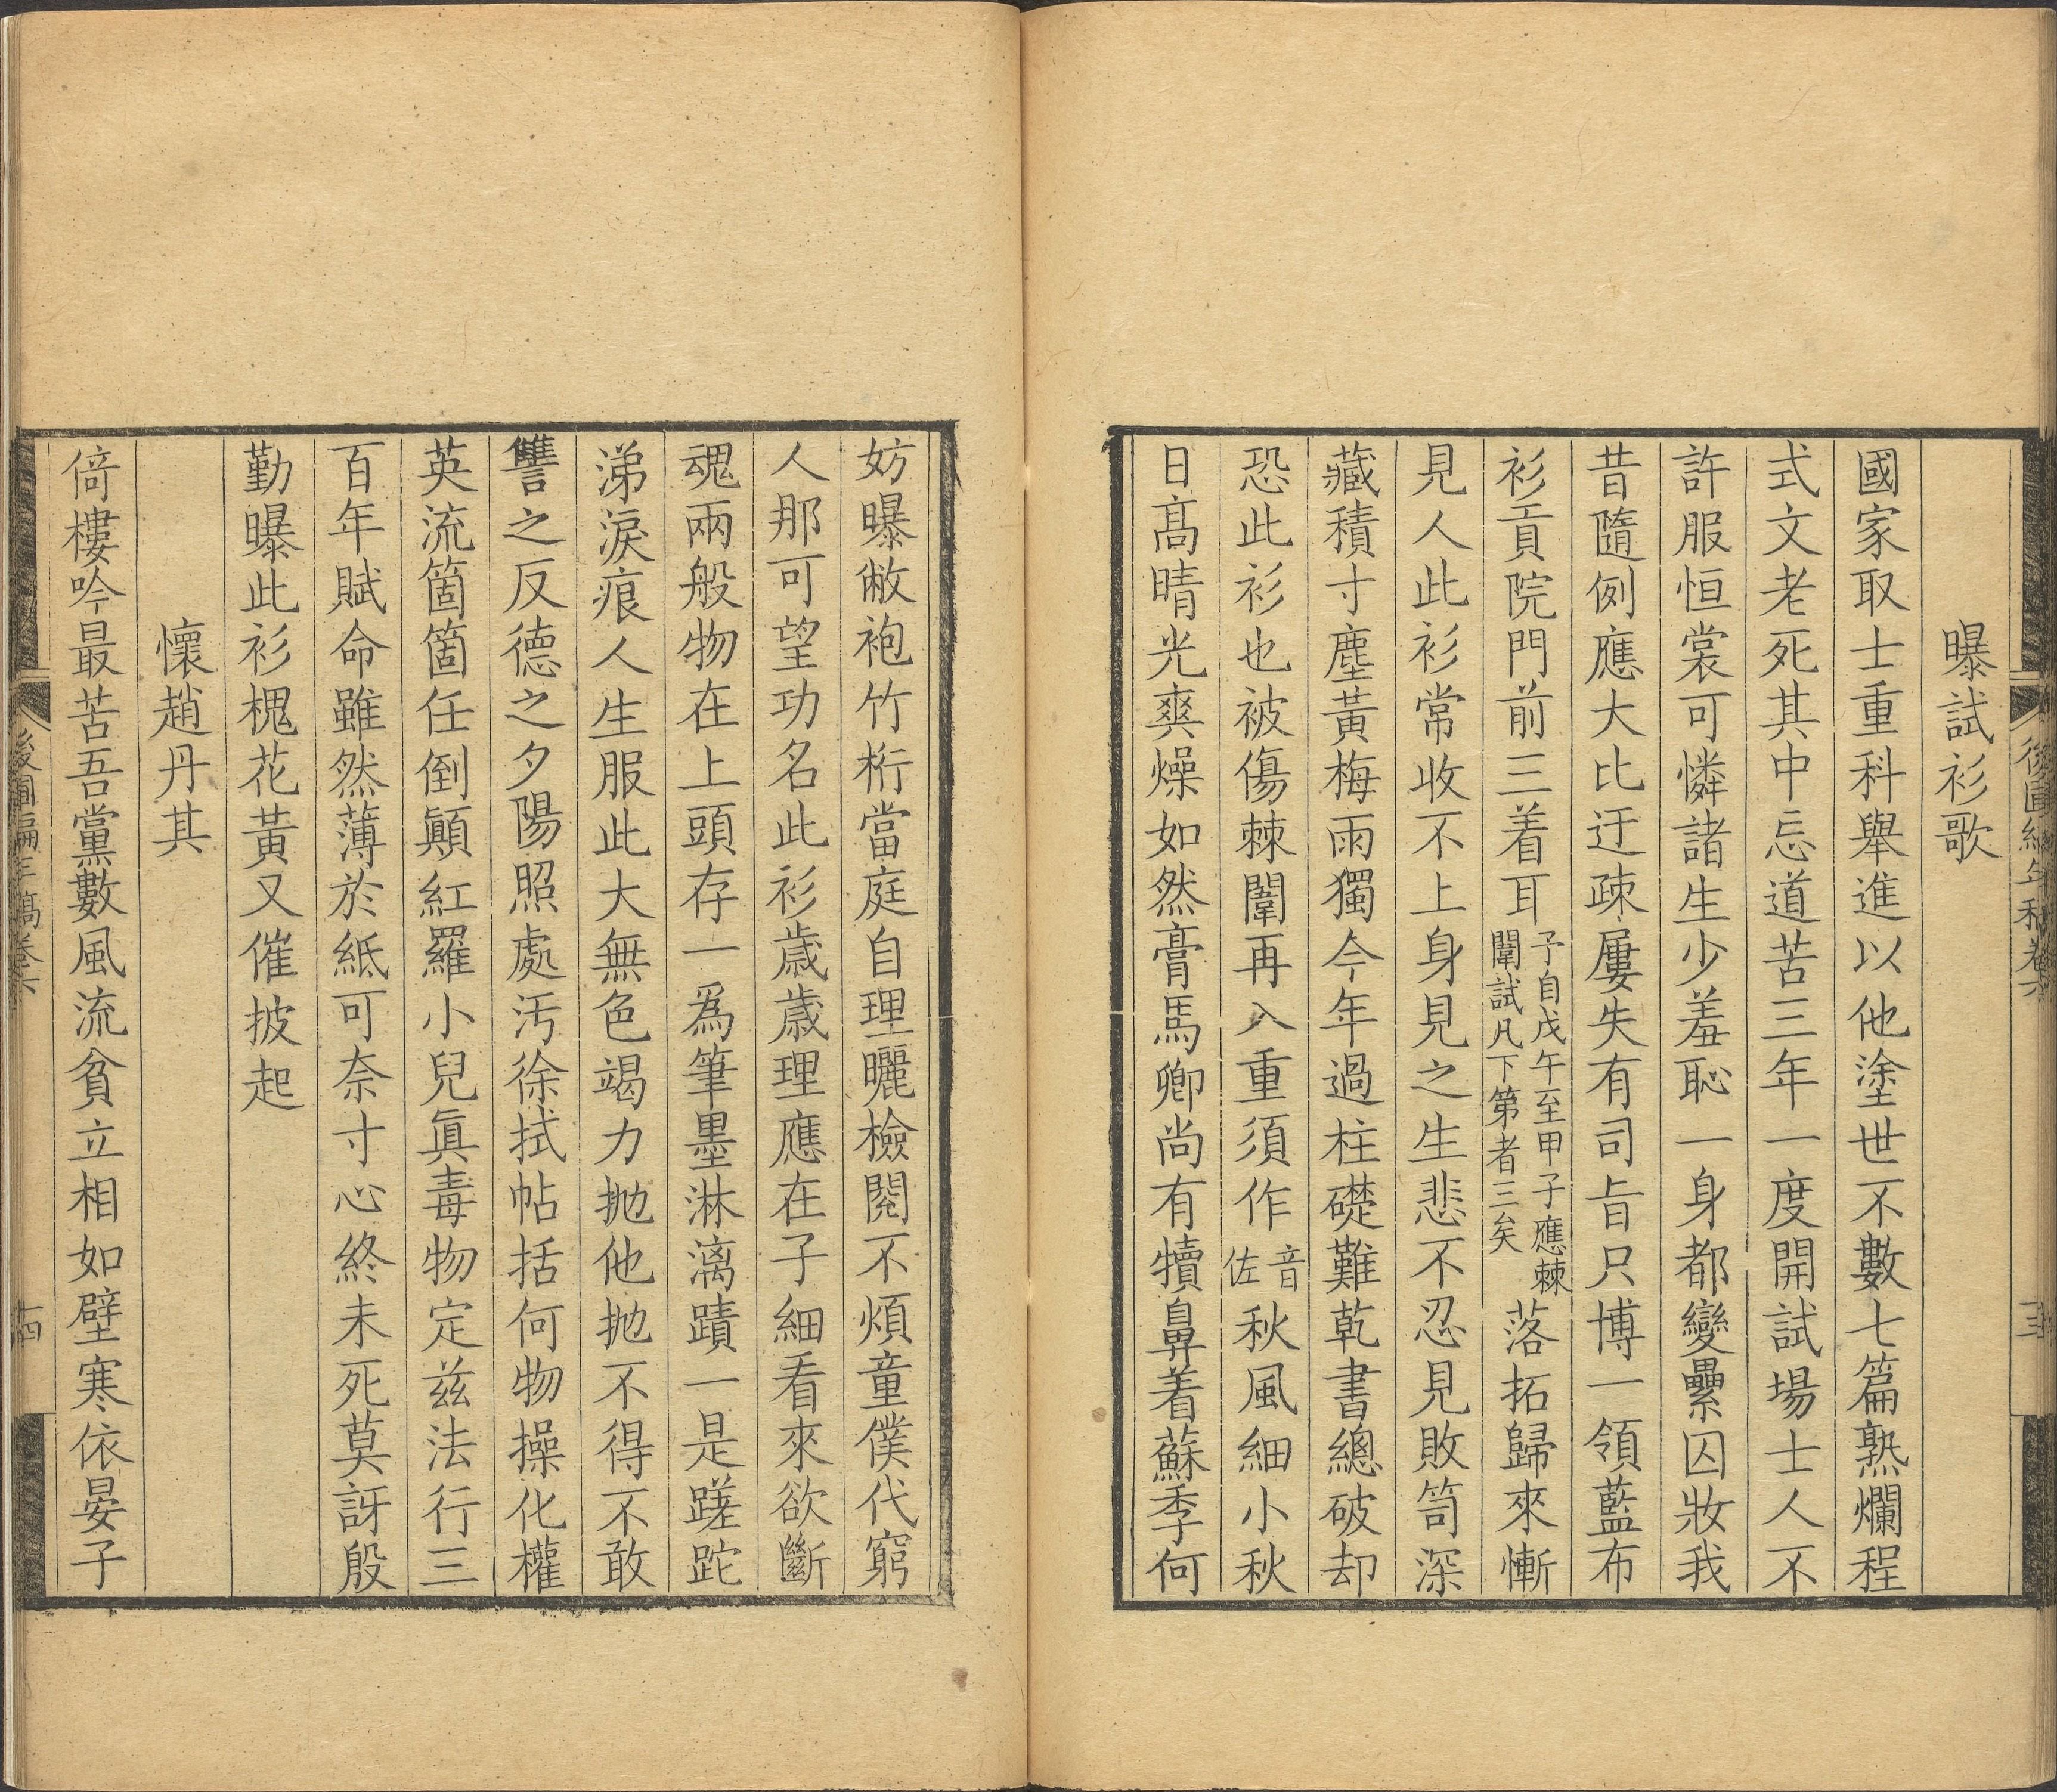 曝試衫歌
國家取士重科舉進以他塗世不數七篇熟爛程
式文老死其中忘道苦三年一度開試場士人不
許服恒裳可憐諸生少羞恥一身都變纍囚妝我
昔隨例應大比迂疎屢失有司旨只博一領藍布
衫貢院門前三着耳予自戊午至甲子應棘闈試凡下第者三矣落拓歸來慚
見人此衫常收不上身見之生悲不忍見敗笥深
藏積寸塵黃梅雨獨今年過柱礎難乾書總破却
恐此衫也被傷棘闈再入重須作音佐秋風細小秋
日高晴光爽燥如然膏馬卿尚有犢鼻着蘇季何
妨曝敝袍竹桁當庭自理曬檢閱不煩童僕代窮
人那可望功名此衫歲歲理應在子細看來欲斷
魂兩般物在上頭存一爲筆墨淋漓蹟一是蹉跎
涕淚痕人生服此大無色竭力拋他拋不得不敢
讐之反德之夕陽照處汚徐拭帖括何物操化權
英流箇箇任倒顚紅羅小兒眞毒物定兹法行三
百年賦命雖然薄於紙可奈寸心終未死莫訝殷
勤曝此衫槐花黃又催披起
懷趙丹其
倚樓吟最苦吾黨數風流貧立相如壁寒依晏子
後圃編年稿卷六
十四